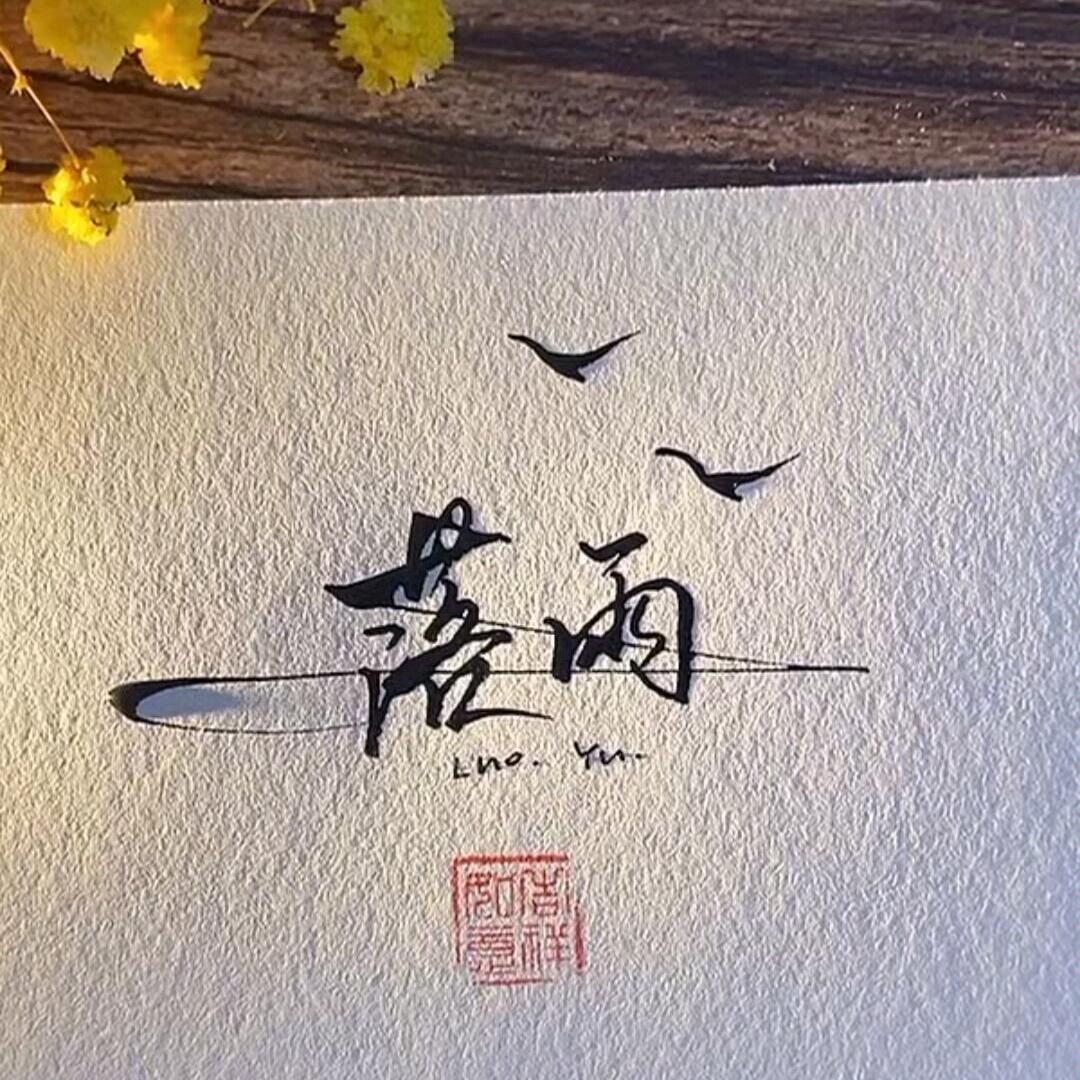 落雨
Luo. Yu.
吉祥
如意